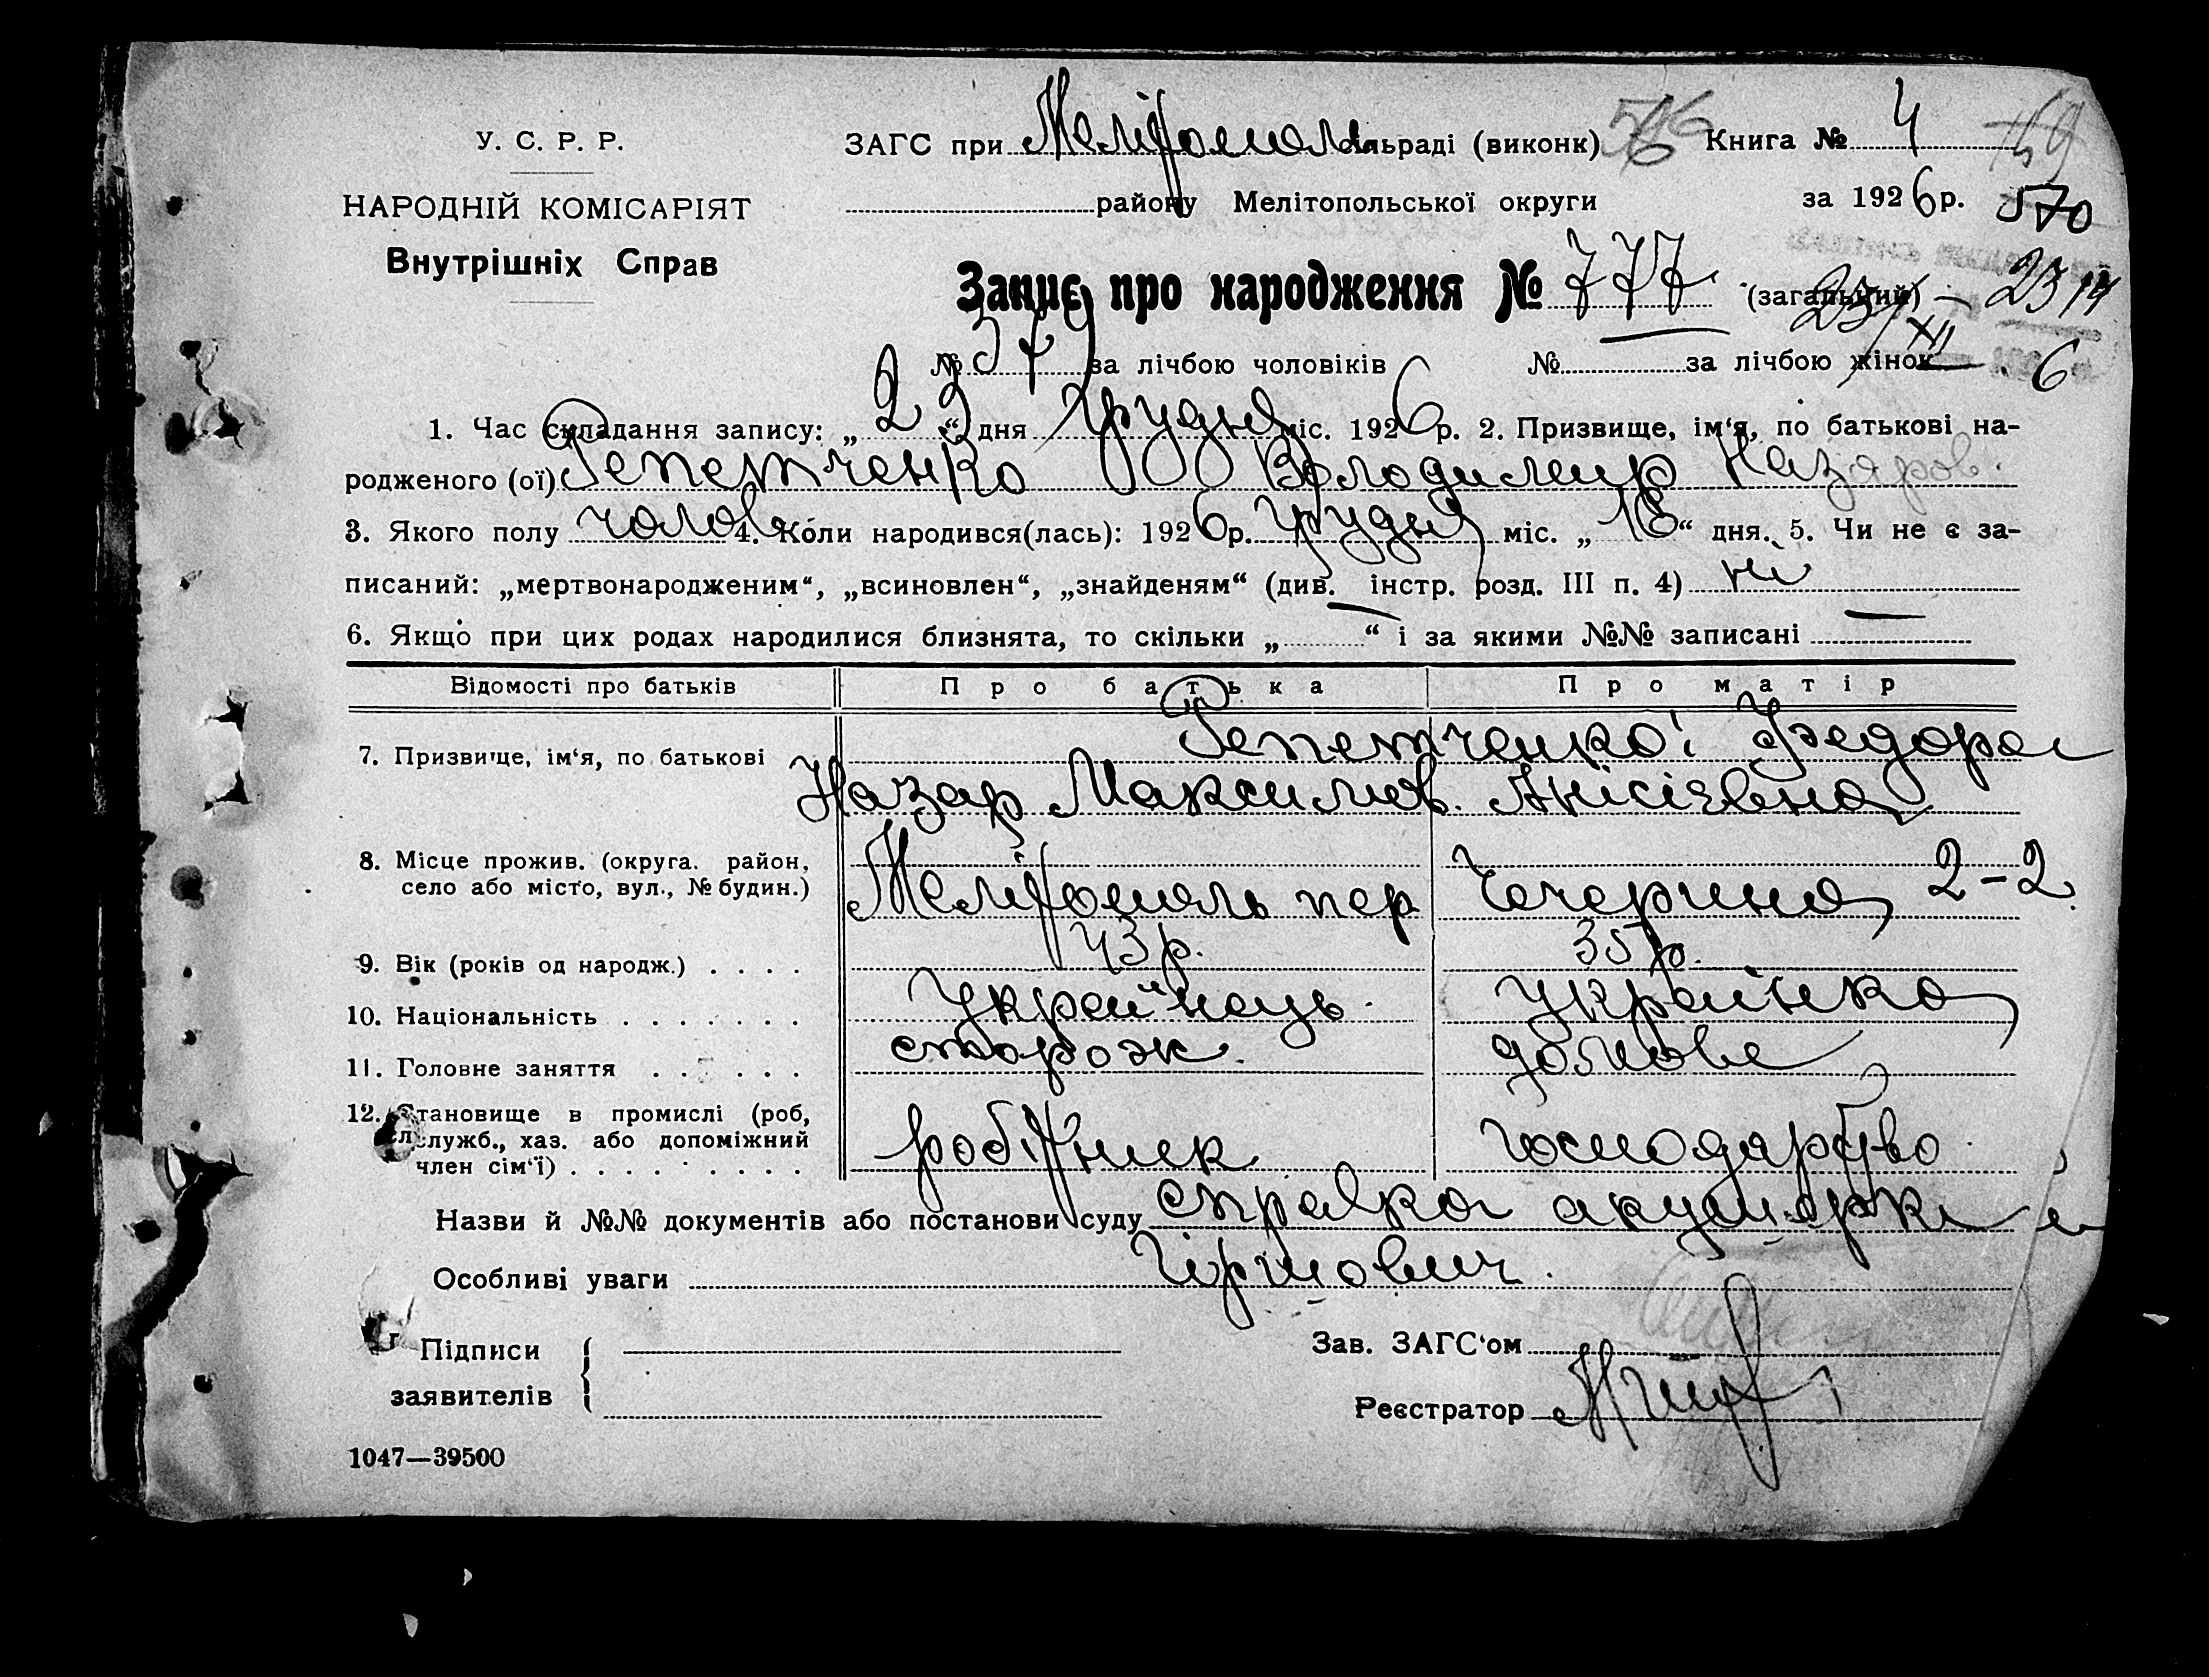 У. С. Р. Р.
НАРОДНІЙ КОМІСАРІЯТ
Внутрішніх Справ
ЗАГС при Мелітопол. сільраді (виконк) 546 Книга № 4
району Мелітопольської округи за 1926 р. 570
Запис про народження № 777 (загальний)
№ 379 за лічбою чоловіків № за лічбою жінок
1. Час складання запису: „23“ дня грудня міс. 1926 р. 2. Призвище, ім‘я, по батькові на-
родженого (ої) Репетченко Володимир Назаров.
3. Якого полу чолов. 4. Коли народився(лась): 1926 р. грудня міс. „18“ дня. 5. Чи не є за-
писаний: „мертвонародженим“, „всиновлен“, „знайденям“ (див. інстр. розд. III п. 4) ні
6. Якщо при цих родах народилися близнята, то скільки „—“ і за якими №№ записані —
Відомості про батьків Про батька Про матір
Репетченко: Федора
7. Призвище, ім‘я, по батькові Назар Максимов. Анісієвна
8. Місце прожив. (округа. район,
село або місто, вул., № будин.) Мелітополь пер Чечерина 2-2.
9. Вік (років од народж.) . . . . 43 р. 35 р.
10. Національність . . . . . . . Українець Українка
11. Головне заняття . . . . . . сторож. домове
12. Становище в промислі (роб,
служб., хаз. або допоміжний робітник господарство
член сім‘ї) . . . . . . . . .
Назви й №№ документів або постанови суду справка акушерки
Особливі уваги
Підписи
заявителів
Зав. ЗАГС‘ом
Реєстратор
1047—39500